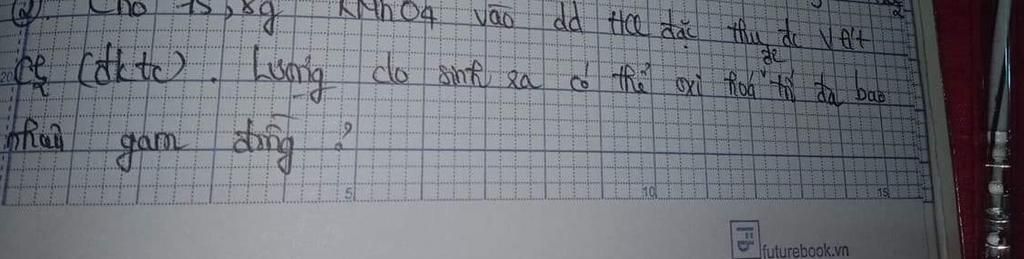 Cho 15,8g KMnO4 vào dd HCl đặc thu đc V lít
Cl2 (đktc). Lượng clo sinh ra có thể oxi hoá tối đa bao
nhiêu gam đồng?
5 10 15
futurebook.vn